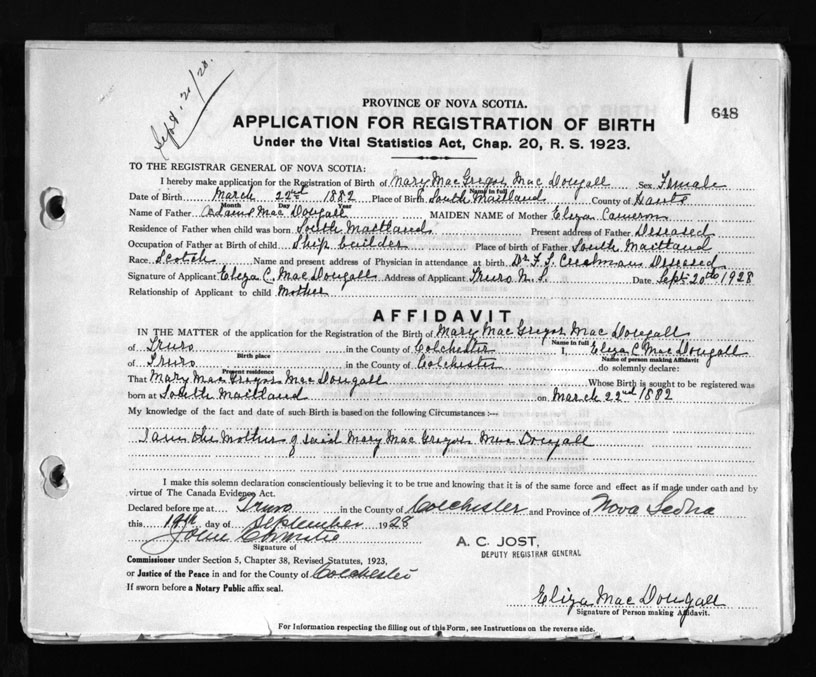 Sept. 20/28.
648
PROVINCE OF NOVA SCOTIA.
APPLICATION FOR REGISTRATION OF BIRTH
Under the Vital Statistics Act, Chap. 20, R. S. 1923.
TO THE REGISTRAR GENERAL OF NOVA SCOTIA:
I hereby make application for the Registration of Birth of Mary MacGregor MacDougall Sex Female
Name in full
Date of Birth March 22nd 1882 Place of Birth South Maitland County of Hants
Month Day Year
Name of Father Adams MacDougall MAIDEN NAME of Mother Eliza Cameron
Residence of Father when child was born South Maitland Present address of Father Deseased
Occupation of Father at Birth of child Ship builder Place of birth of Father South Maitland
Race Scotch Name and present address of Physician in attendance at birth Dr. F. L. Deseased
Signature of Applicant Eliza C. MacDougall Address of Applicant Truro N. S. Date Sept 20th 1928
Relationship of Applicant to child Mother
AFFIDAVIT
IN THE MATTER of the application for the Registration of the Birth of Mary MacGregor MacDougall
Name in full
of Truro in the County of Colchester I, Eliza C MacDougall
Birth place Name of person making Affidavit
of Truro in the County of Colchester do solemnly declare:
Present residence
That Mary MacGregor MacDougall Whose Birth is sought to be registered was
born at South Maitland on March 22nd 1882
My knowledge of the fact and date of such Birth is based on the following Circumstances :—
I am the Mother of said Mary MacGregor MacDougall
I make this solemn declaration conscientiously believing it to be true and knowing that it is of the same force and effect as if made under oath and by
virtue of The Canada Evidence Act.
Declared before me at Truro in the County of Colchester and Province of Nova Scotia
this 19th day of September 1928
John Christie
Signature of
A. C. JOST,
DEPUTY REGISTRAR GENERAL
Commissioner under Section 5, Chapter 38, Revised Statutes, 1923,
or Justice of the Peace in and for the County of Colchester
If sworn before a Notary Public affix seal.
Eliza MacDougall
Signature of Person making Affidavit.
For Information respecting the filling out of this Form, see Instructions on the reverse side.